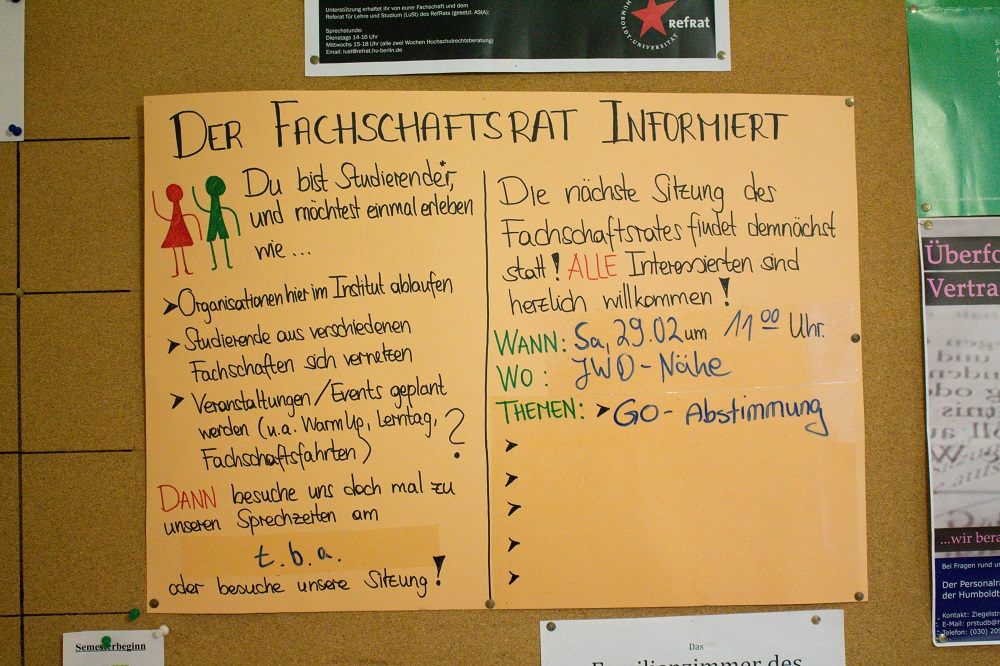 Unterstützung erhaltet ihr von eurer Fachschaft und dem
Referat für Lehre und Studium (LuSt) des RefRats (gesetzl. AStA):
Sprechstunde:
Dienstags 14-16 Uhr
Mittwochs 15-18 Uhr (alle zwei Wochen Hochschulrechtsberatung)
Email: lust@refrat.hu-berlin.de
RefRat
HUMBOLDT-UNIVERSITÄT
DER FACHSCHAFTSRAT INFORMIERT
Du bist Studierende*r,
und möchtest einmal erleben
wie ...
➤ Organisationen hier im Institut ablaufen
➤ Studierende aus verschiedenen
Fachschaften sich vernetzen
➤ Veranstaltungen/Events geplant
werden (u.a. WarmUp, Lerntag,
Fachschaftsfahrten) ?
DANN besuche uns doch mal zu
unseren Sprechzeiten am
t.b.a.
oder besuche unsere Sitzung!
Die nächste Sitzung des
Fachschaftsrates findet demnächst
statt! ALLE Interessierten sind
herzlich willkommen!
WANN: Sa, 29.02 um 11 00 Uhr.
WO: JWD-Nähe
THEMEN: ➤ GO-Abstimmung
➤
➤
➤
➤
➤
Überfo
Vertra
...wir bera
Bei Fragen rund u
Der Personalra
der Humboldt
Kontakt: Ziegelstr
E-Mail: prstudb@h
Telefon: (030) 209
Semesterbeginn
Das
Familienzimmer des